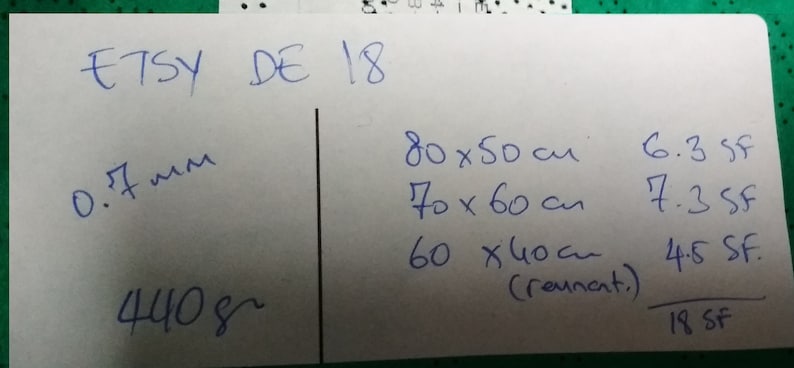 ETSY DE 18
0.7 mm
440 gr
80 x 50 cm 6.3 SF
70 x 60 cm 7.3 SF
60 x 40 cm 4.5 SF.
(remnant.)
18 SF